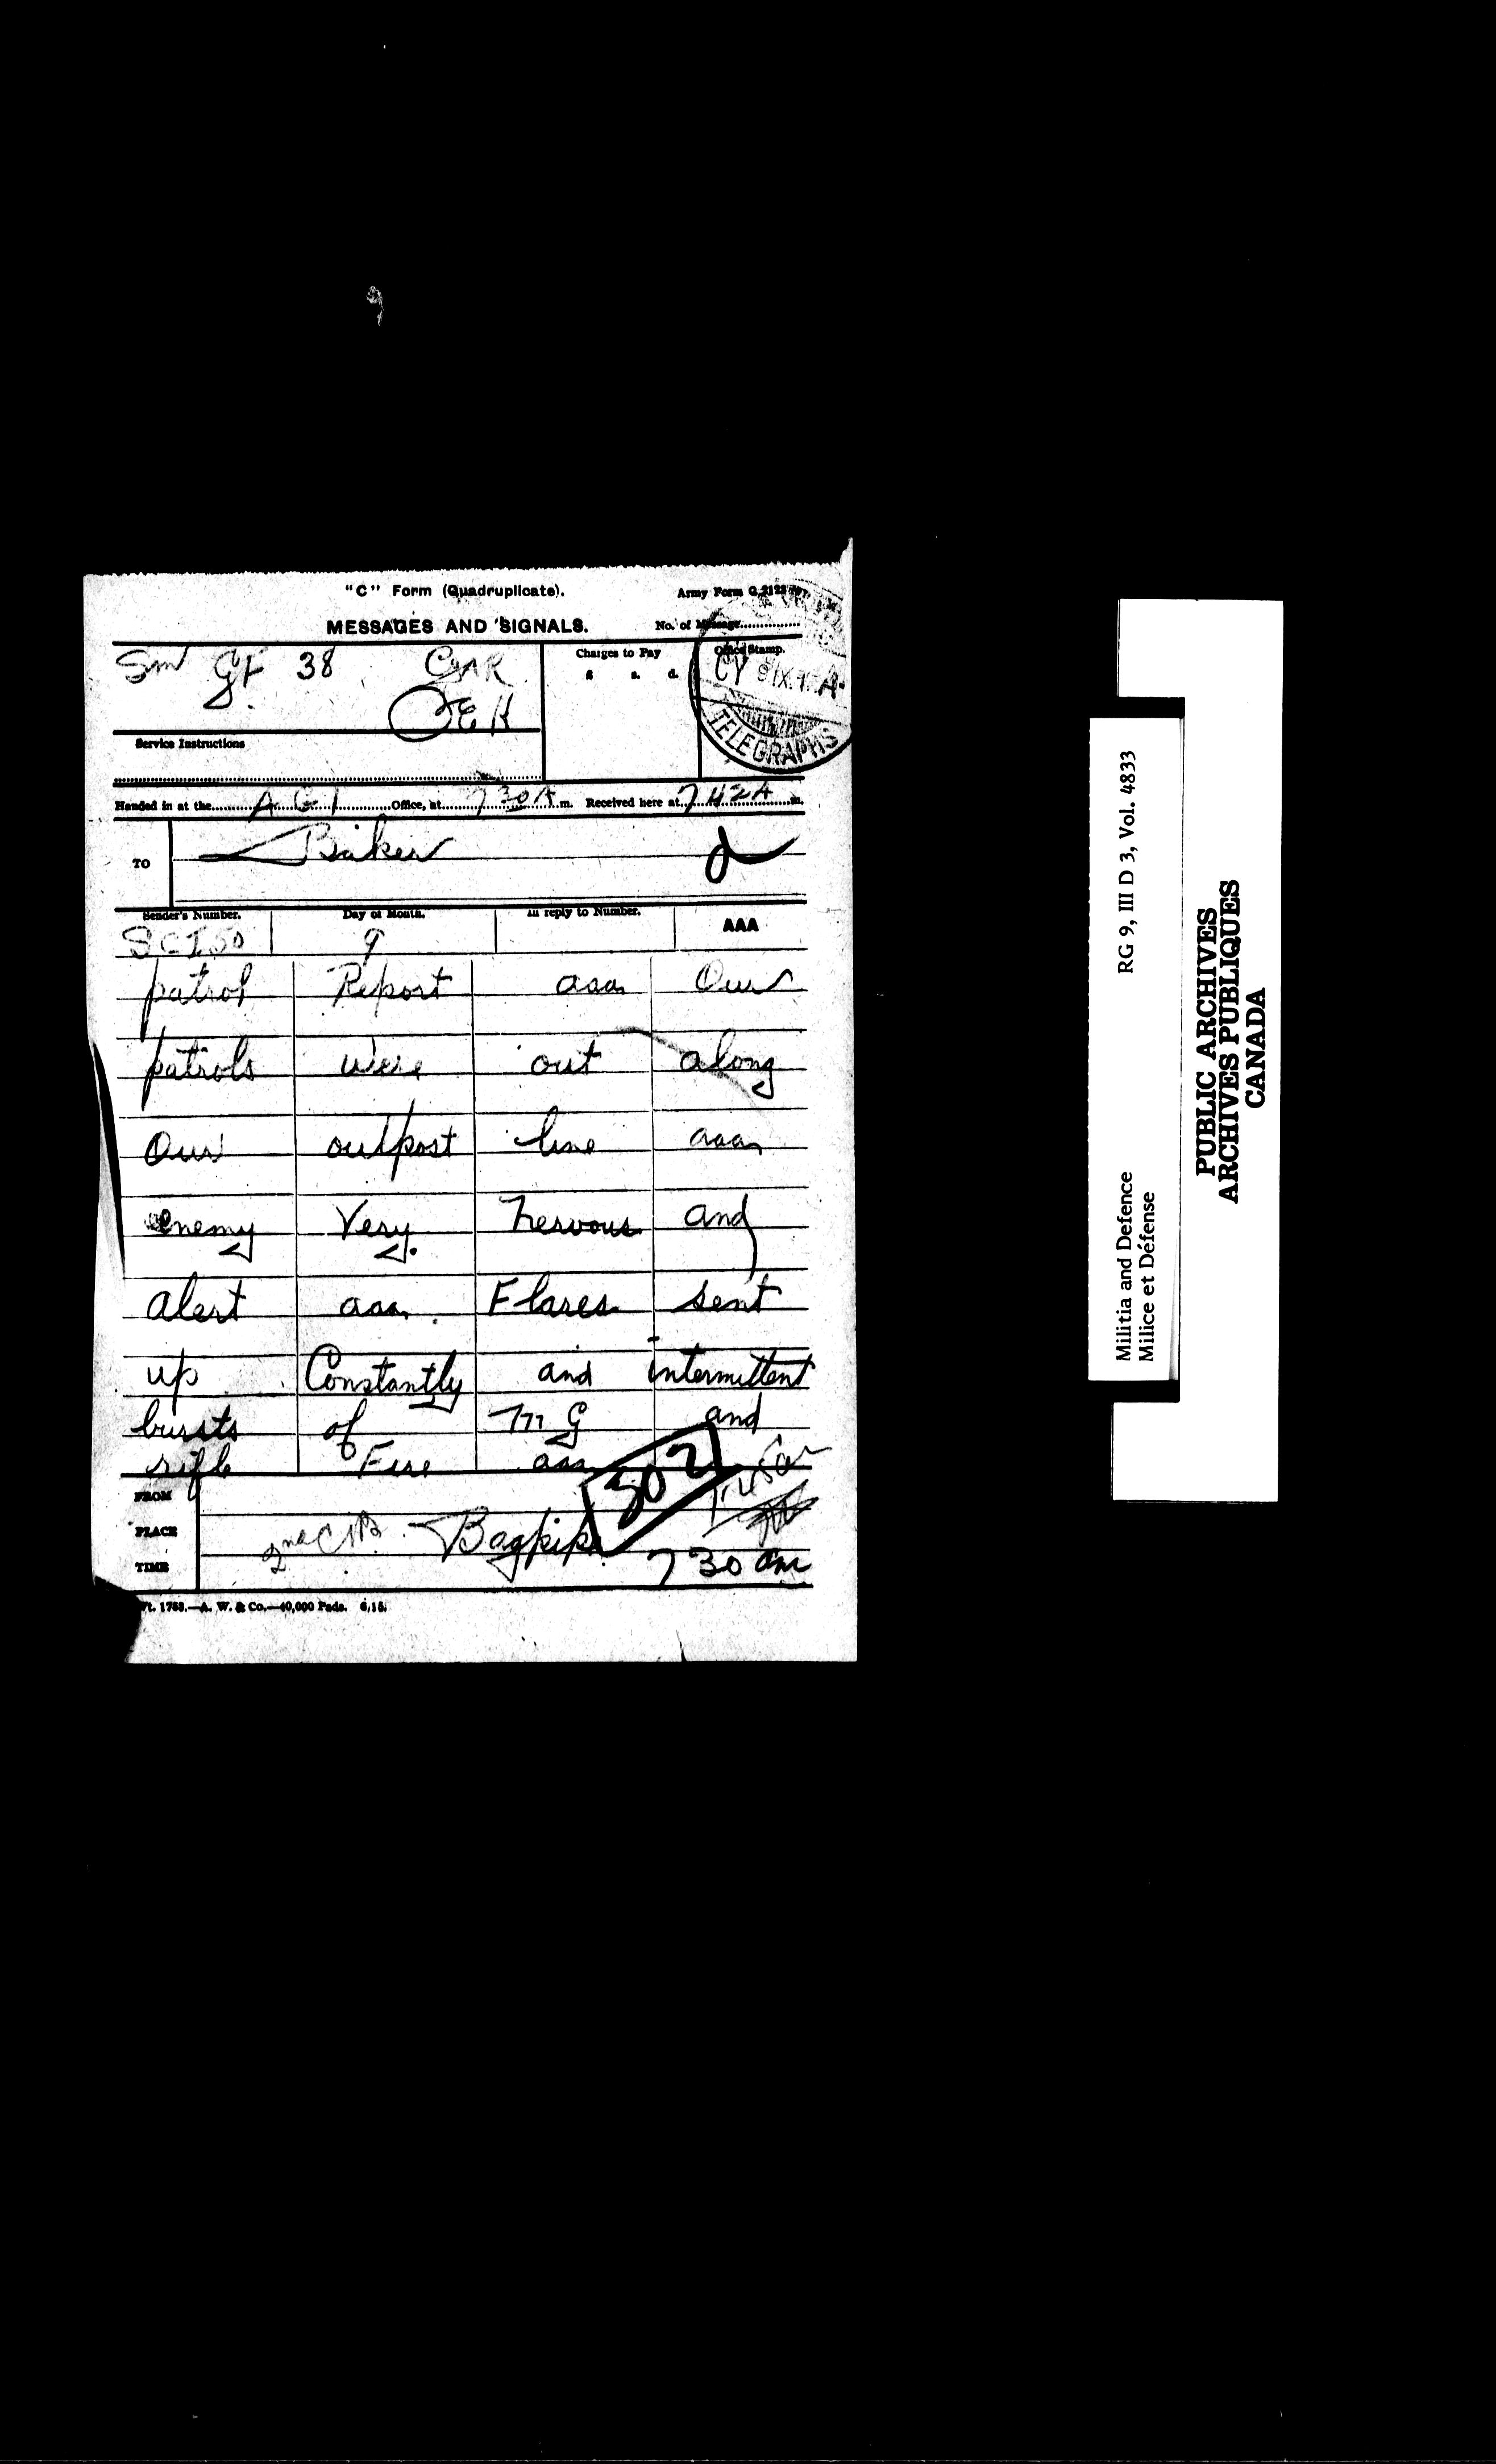 "C" Form (Quadruplicate).
Army Form C.2123
MESSAGES AND SIGNALS.
No. of Message
Sm GF 38
Charges to Pay
£ s. d.
Office Stamp.
CY 9 IX A
TELEGRAPHS
Service Instructions
Handed in at the Office, at 7 30 A m. Received here at 7 42 A m.
TO Baker
Sender's Number. Day of Month. In reply to Number. AAA
9
patrol Report aaa Our
patrols were out along
Our outpost line aaa
enemy Very nervous and
alert aaa Flares sent
up Constantly and intermittent
bursts of M G and
rifle Fire aaa
302
FROM
PLACE
2nd CIB Bagpipe
TIME
7 30 am
Wt. 1753.—A. W. & Co.—40,000 Pads. 6,15.
Militia and Defence RG 9, III D 3, Vol. 4833
Milice et Défense
PUBLIC ARCHIVES
ARCHIVES PUBLIQUES
CANADA